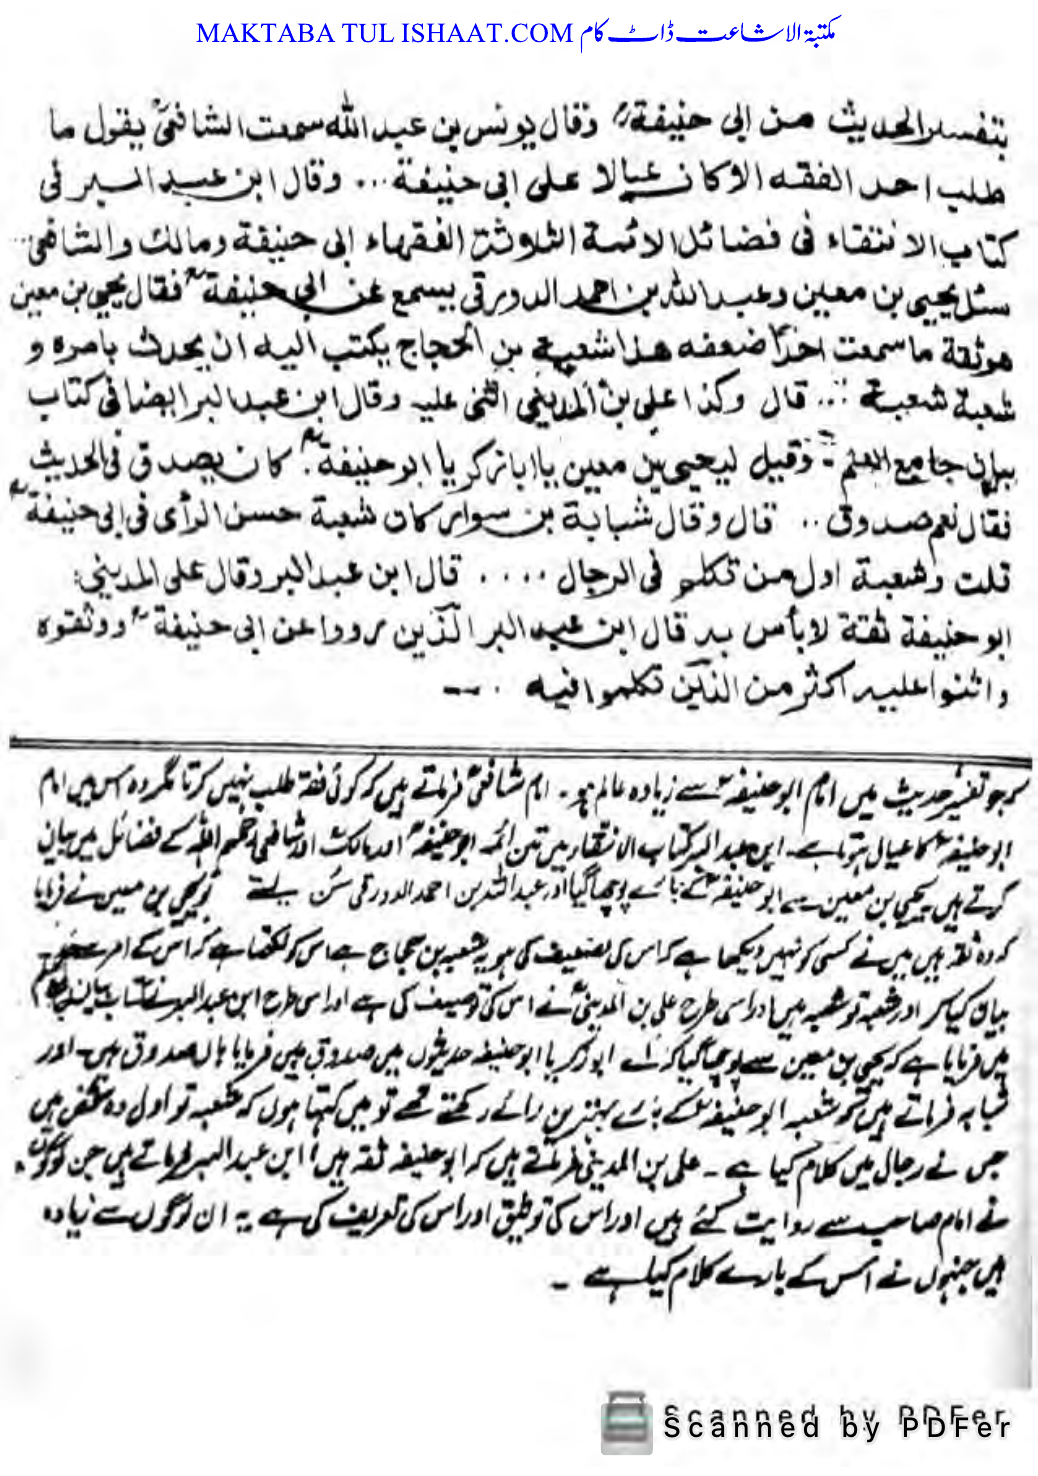 MAKTABA TUL ISHAAT.COM مکتبۃ الاشاعت ڈاٹ کام
بتفسير الحديث من ابی حنيفة وقال يونس بن عبد الله سمعت الشافعی يقول ما
طلب احد الفقه الا كان عيالا على ابی حنيفة... وقال ابن عبد البر فی
كتاب الانتقاء فی فضائل الائمة الثلوثة الفقهاء ابی حنيفة ومالك والشافعی..
سئل يحيی بن معين وعبد الله بن احمد الدورقی يسمع عن ابی حنيفة فقال يحيی بن معين
هو ثقة ما سمعت احدا ضعفه هذا شعبة بن الحجاج يكتب اليه ان يحدث بامره و
شعبة شعبة ... قال وكذا علی بن المدينی اثنی عليه وقال ابن عبد البر ايضا فی كتاب
بيان جامع العلم :- وقيل ليحيی بن معين يا ابا زكريا ابو حنيفة كان يصدق فی الحديث
فقال نعم صدوق .. قال وقال شبابة بن سوار كان شعبة حسن الرأی فی ابی حنيفة
قلت وشعبة اول من تكلم فی الرجال .... قال ابن عبد البر وقال علی المدينی:
ابو حنيفة ثقة لا بأس به قال ابن عبد البر الذين رووا عن ابی حنيفة ووثقوه
واثنوا عليه اكثر من الذين تكلموا فيه . --
کہ جو تفسیر حدیث میں امام ابو حنیفہؒ سے زیادہ عالم ہو۔ امام شافعیؒ فرماتے ہیں کہ کوئی فقہ طلب نہیں کرتا مگر وہ اس میں امام
ابو حنیفہؒ کا عیال ہوتا ہے۔ ابن عبد البر کتاب الانتقاء میں تین ائمہ ابو حنیفہؒ اور مالکؒ اور شافعی رحمہم اللہ کے فضائل میں بیان
کرتے ہیں یحییٰ بن معین سے ابو حنیفہؒ کے بارے پوچھا گیا اور عبد اللہ بن احمد الدورقی سُن رہے تھے تو یحییٰ بن معین نے فرمایا
کہ وہ ثقہ ہیں میں نے کسی کو نہیں دیکھا ہے کہ اس کی تضعیف کی ہو یہ شعبہ بن حجاج ہے اس کو لکھتا ہے کہ اس کے امر سے
بیان کیا کر اور شعبہ تو شعبہ ہیں اور اسی طرح علی بن المدینیؒ نے اس کی توصیف کی ہے اور اسی طرح ابن عبد البر نے کتاب بیان جامع العلم
میں فرمایا ہے کہ یحییٰ بن معین سے پوچھا گیا کہ اے ابو زکریا ابو حنیفہ حدیثوں میں صدوق ہیں فرمایا ہاں صدوق ہیں۔ اور
شبابہ فرماتے ہیں کہ شعبہ ابو حنیفہؒ کے بارے بہترین رائے رکھتے تھے تو میں کہتا ہوں کہ شعبہ تو اول وہ شخص ہیں
جس نے رجال میں کلام کیا ہے ۔ علی بن المدینی فرماتے ہیں کہ ابو حنیفہ ثقہ ہیں، ابن عبد البر فرماتے ہیں جن لوگوں
نے امام صاحب سے روایت کئے ہیں اور اس کی توثیق اور اس کی تعریف کی ہے یہ ان لوگوں سے زیادہ
ہیں جنہوں نے اس کے بارے کلام کیا ہے ۔
Scanned by PDFer